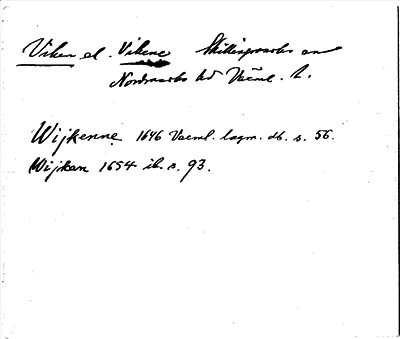 Viken el. Vikene Skillingmarks sn
Nordmarks hd Värml. l.
Wijkenne 1646 Vaerml. lagm. db. s. 56.
Wijken 1654 ib. s. 93.